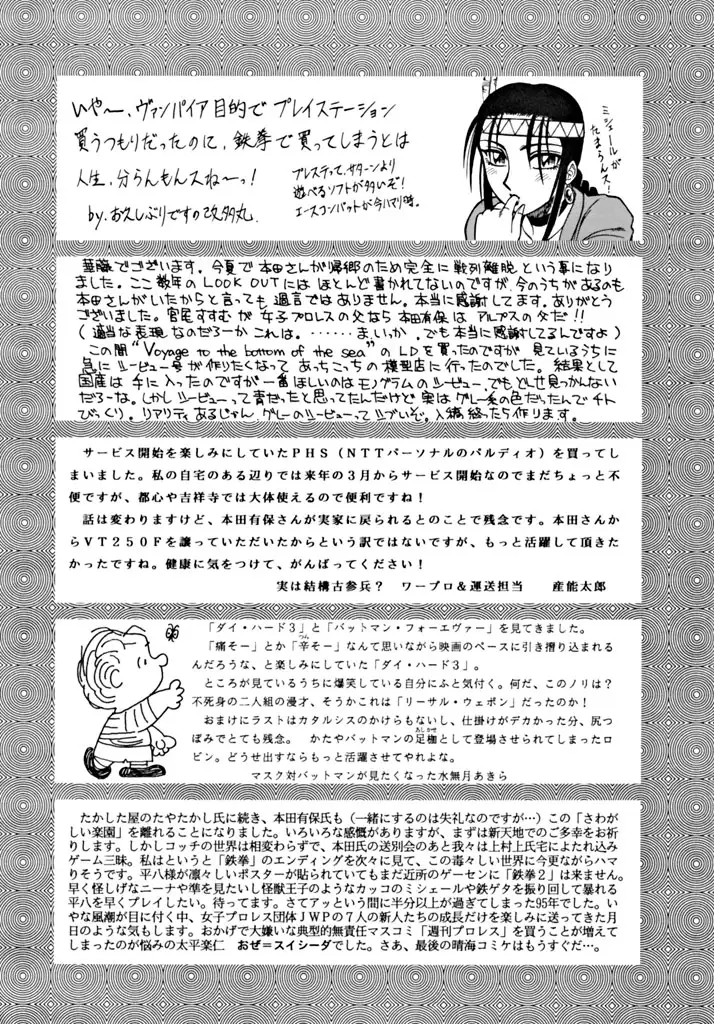 いや〜、ヴァンパイア目的でプレイステーション
買うつもりだったのに、鉄拳で買ってしまうとは
人生、分らんもんスね〜っ!
by.お久しぶりですの改多丸
プレステって、サターンより
遊べるソフトが多いぞ!
エースコンバットが今ハマリ時。
ミシェールが
たまらんス!
華藤でございます。今夏で本田さんが帰郷のため完全に戦列離脱という事になり
ました。ここ数年のLOOK OUTにはほとんど書かれてないのですが、今のうちがあるのも
本田さんがいたからと言っても過言ではありません。本当に感謝してます。ありがとう
ございました。宮尾すすむが女子プロレスの父なら本田有保はアルプスの父だ!!
(適当な表現なのだろーかこれは。・・・・・・ま、いっか。でも本当に感謝してるんですよ)
この間"Voyage to the bottom of the sea"のLDを買ったのですが見ているうちに
急にシービュー号が作りたくなってあっちこっちの模型店に行ったのでした。結果として
国産は手に入ったのですが一番ほしいのはモノグラムのシービュー、でもどしせ見っかんない
だろーな。しかしシービューって青だったと思ってたんだけど実はグレー系の色だったんでチト
びっくり。リアリティあるじゃん、グレーのシービューってシブいぞ。入稿終ったら作ります。
サービス開始を楽しみにしていたPHS(NTTパーソナルのパルディオ)を買ってし
まいました。私の自宅のある辺りでは来年の3月からサービス開始なのでまだちょっと不
便ですが、都心や吉祥寺では大体使えるので便利ですね!
話は変わりますけど、本田有保さんが実家に戻られるとのことで残念です。本田さんか
らVT250Fを譲っていただいたからという訳ではないですが、もっと活躍して頂きた
かったですね。健康に気をつけて、がんばってください!
実は結構古参兵? ワープロ&運送担当 産能太郎
「ダイ・ハード3」と「バットマン・フォーエヴァー」を見てきました。
「痛そー」とか「辛そー」なんて思いながら映画のペースに引き摺り込まれる
つん
んだろうな、と楽しみにしていた「ダイ・ハード3」。
ところが見ているうちに爆笑している自分にふと気付く。何だ、このノリは?
不死身の二人組の漫才、そうかこれは「リーサル・ウェポン」だったのか!
おまけにラストはカタルシスのかけらもないし、仕掛けがデカかった分、尻つ
ぼみでとても残念。 かたやバットマンの足枷として登場させられてしまったロ
あしかせ
ビン。どうせ出すならもっと活躍させてやれよな。
マスク対バットマンが見たくなった水無月あきら
たかした屋のたやたかし氏に続き、本田有保氏も(一緒にするのは失礼なのですが…)この「さわが
しい楽園」を離れることになりました。いろいろな感慨がありますが、まずは新天地でのご多幸をお祈
りします。しかしコッチの世界は相変わらずで、本田氏の送別会のあと我々は上村上氏宅によたれ込み
ゲーム三昧。私はというと「鉄拳」のエンディングを次々に見て、この毒々しい世界に今更ながらハマ
りそうです。平八様が凛々しいポスターが貼られていてもまだ近所のゲーセンに「鉄拳2」は来ません。
早く怪しげなニーナや準を見たいし怪獣王子のようなカッコのミシェールや鉄ゲタを振り回して暴れる
平八を早くプレイしたい。待ってます。さてアッという間に半分以上が過ぎてしまった95年でした。い
やな風潮が目に付く中、女子プロレス団体JWPの7人の新人たちの成長だけを楽しみに送ってきた月
日のような気もします。おかげで大嫌いな典型的無責任マスコミ「週刊プロレス」を買うことが増えて
しまったのが悩みの太平楽仁 おぜ=スイシーダでした。さあ、最後の晴海コミケはもうすぐだ…。